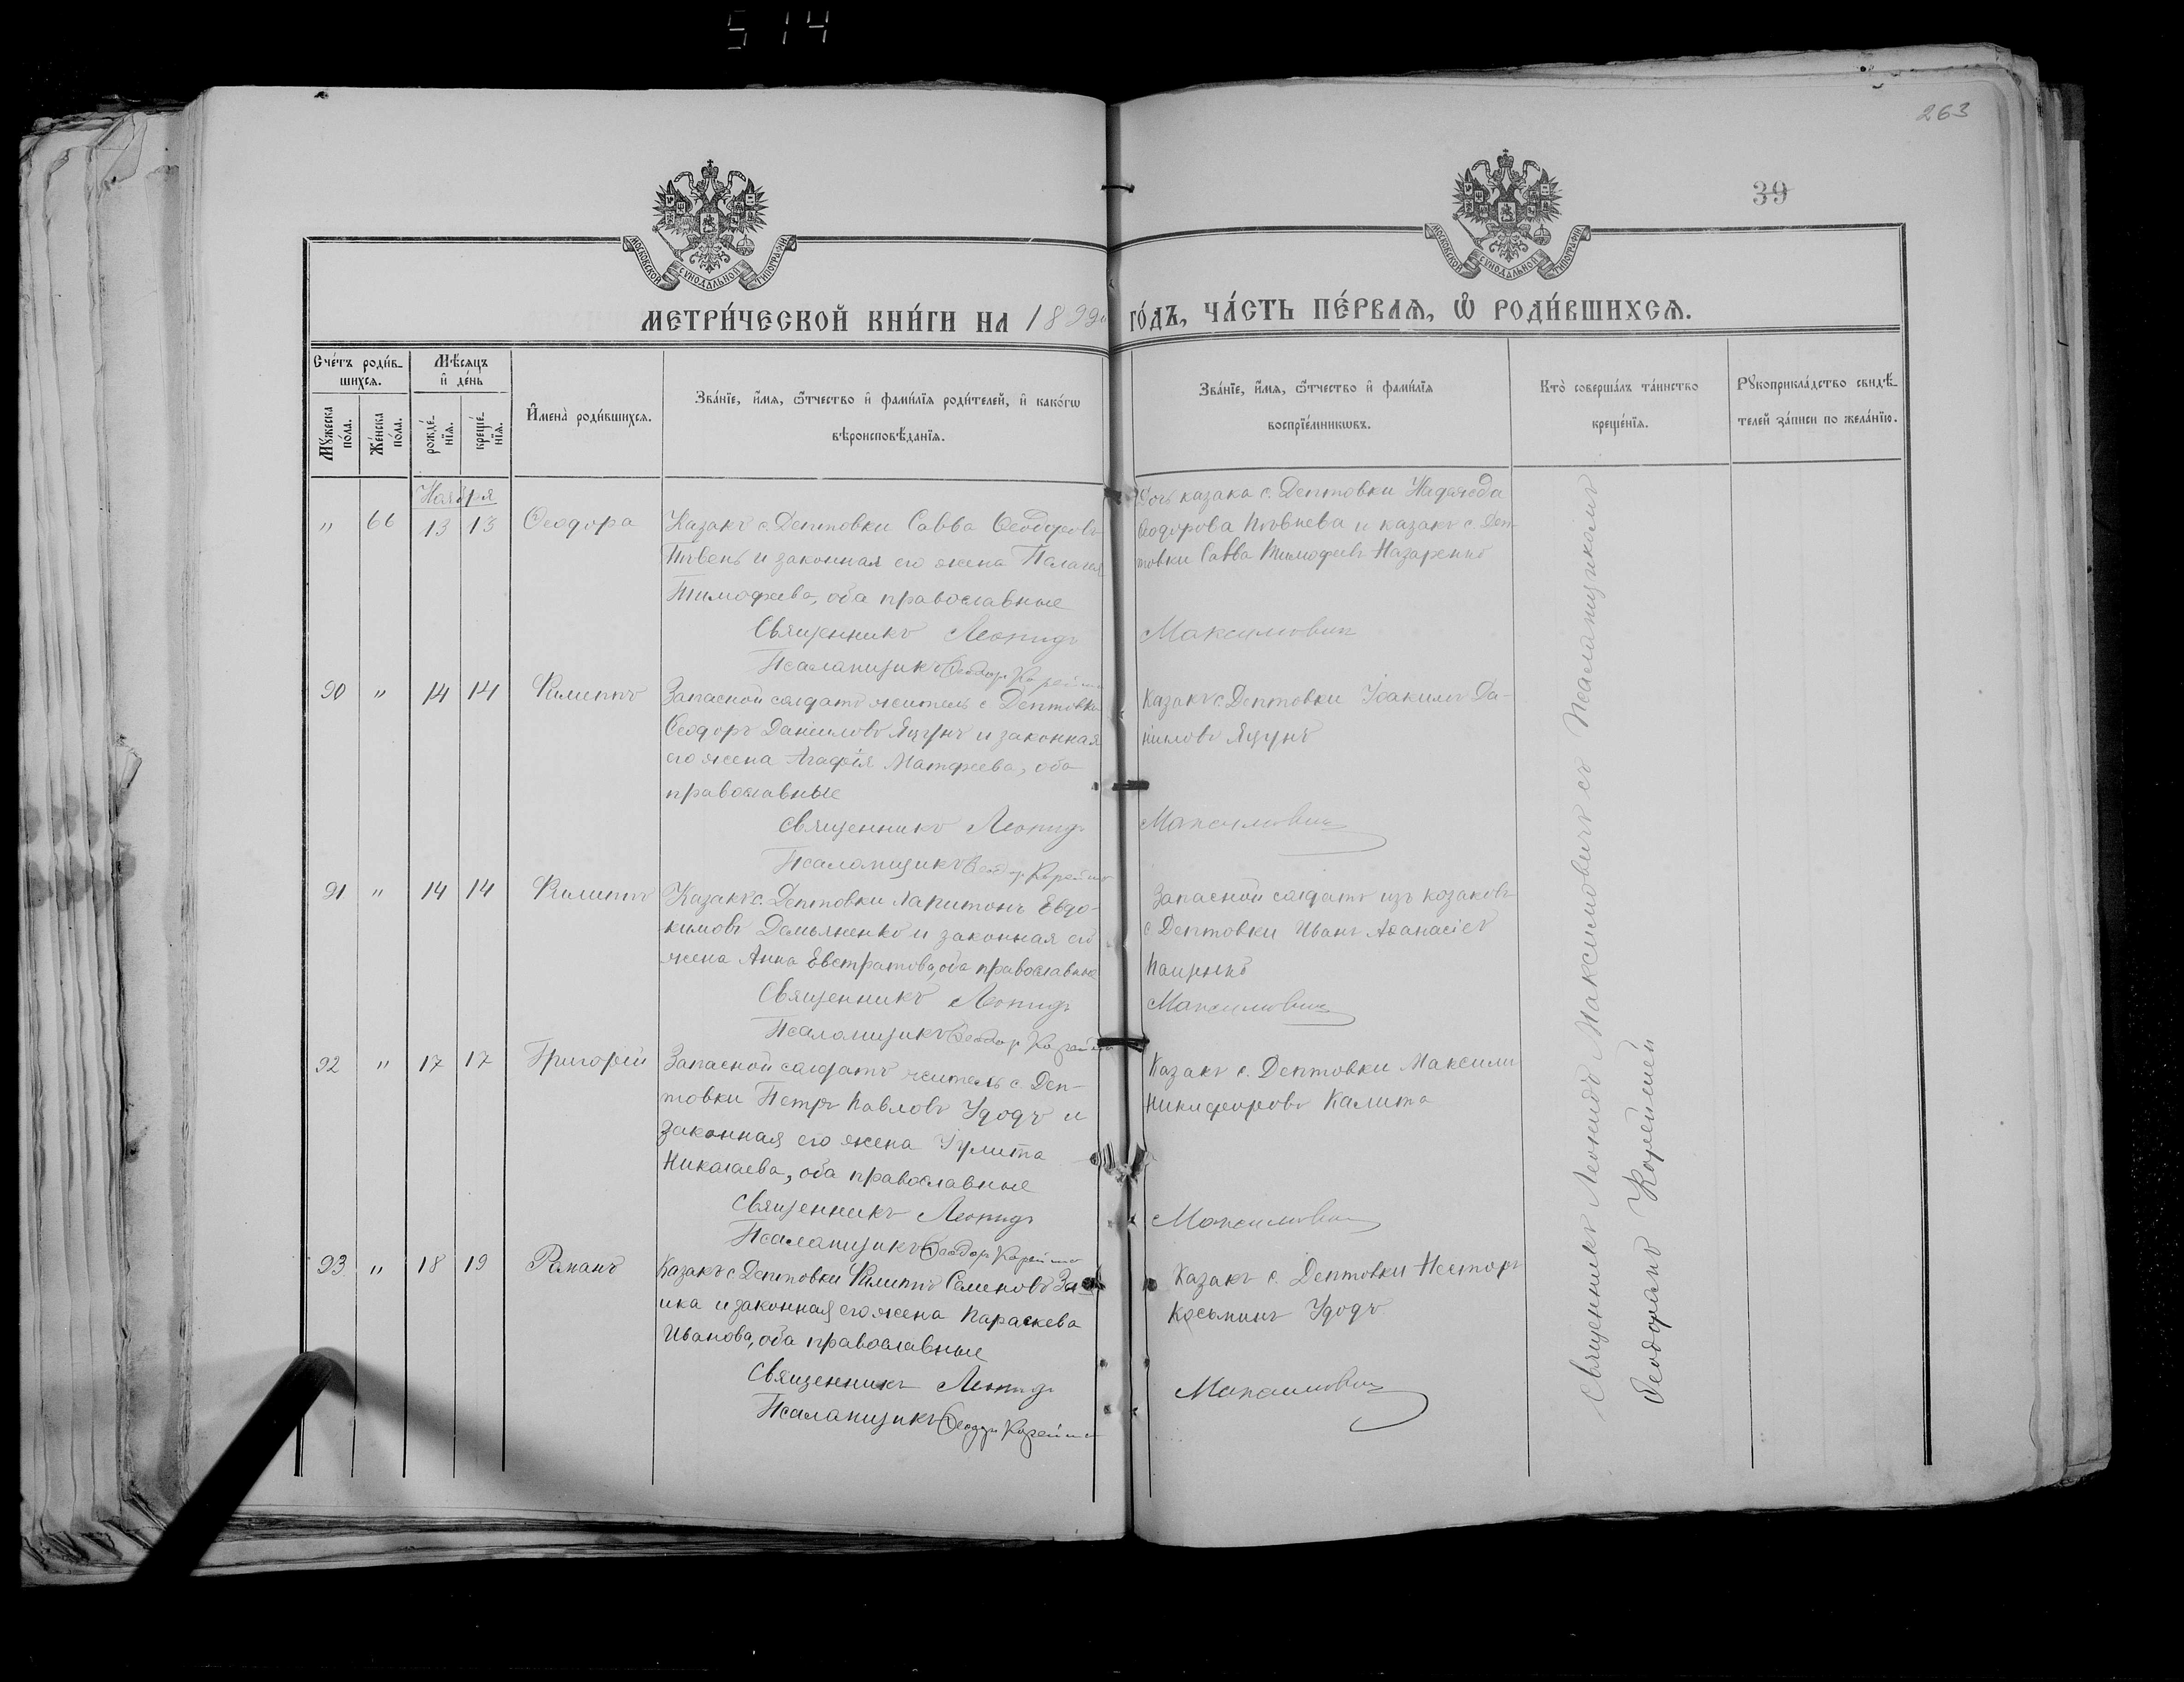 514
263
39
МОСКОВСКОЙ СѴНОДАЛЬНОЙ ТИПОГРАФІИ
МОСКОВСКОЙ СѴНОДАЛЬНОЙ ТИПОГРАФІИ
МЕТРИ́ЧЕСКОЙ КНИ́ГИ НА 1899й ГО́ДЪ, ЧА́СТЬ ПЕ́РВАѦ, Ѽ РОДИ́ВШИХСѦ.
Сче́тъ роди́в-
шихсѧ.
Мѣ́сѧцъ
и҆ де́нь
Мꙋ́жеска
по́ла.
Же́нска
по́ла.
рожде́-
нїѧ.
креще́-
нїѧ.
И҆мена̀ роди́вшихсѧ.
Зва́нїе, и҆́мѧ, ѻ҆́тчество и҆ фами́лїѧ роди́телей, и҆ како́гѡ
вѣроисповѣ́данїѧ.
Зва́нїе, и҆́мѧ, ѻ҆́тчество и҆ фами́лїѧ
воспрїе́мникѡвъ.
Кто̀ соверша́лъ та́инство
креще́нїѧ.
Рꙋкоприкла́дство свидѣ́-
телей за́писи по жела́нїю.
Ноября
" 66 13 13 Ѳеодора
Казакъ с. Дептовки Савва Ѳеодоровъ
Пѣвень и законная его жена Пелагія
Тимофеева, оба православные
Священникъ Леонидъ
Псаломщикъ Ѳеодоръ Корейша
Дочь казака с. Дептовки Надежда
Ѳеодорова Пѣвнева и казакъ с. Деп-
товки Савва Тимофеевъ Назаренко
Максимовичъ
90 " 14 14 Филиппъ
Запасной солдатъ житель с. Дептовки
Ѳеодоръ Даніиловъ Яцунъ и законная
его жена Агафія Матфеева, оба
православные
Священникъ Леонидъ
Псаломщикъ Ѳеодоръ Корейша
Казакъ с. Дептовки Іоакимъ Да-
ніиловъ Яцунъ
Максимовичъ
91 " 14 14 Филиппъ
Казакъ с. Дептовки Харитонъ Евдо-
кимовъ Демьяненко и законная его
жена Анна Евстратова, оба православные
Священникъ Леонидъ
Псаломщикъ Ѳеодоръ Корейша
Запасной солдатъ изъ козаковъ
с. Дептовки Иванъ Аѳанасіев
Пащенко
Максимовичъ
92 " 17 17 Григорій
Запасной солдатъ житель с. Деп-
товки Петръ Павловъ Удодъ и
законная его жена Іулита
Николаева, оба православные
Священникъ Леонидъ
Псаломщикъ Ѳеодоръ Корейша
Казакъ с. Дептовки Максимъ
Никифоровъ Калита
Максимовичъ
93 " 18 19 Романъ
Казакъ с. Дептовки Филиппъ Семеновъ За-
ика и законная его жена Параскева
Иванова, оба православные
Священникъ Леонидъ
Псаломщикъ Ѳеодоръ Корейша
Казакъ с. Дептовки Несторъ
Косьминъ Удодъ
Максимовичъ
Священникъ Леонидъ Максимовичъ съ Псаломщикомъ
Ѳеодоромъ Корейшей